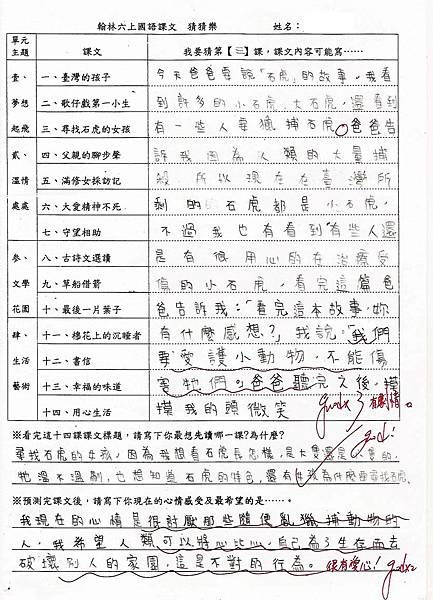 翰林六上國語課文 猜猜樂 姓名：
單元主題 課文 我要猜第【三】課，課文內容可能寫……
壹、夢想起飛
一、臺灣的孩子
二、歌仔戲第一小生
三、尋找石虎的女孩
貳、溫情處處
四、父親的腳步聲
五、滿修女採訪記
六、大愛精神不死
七、守望相助
參、文學花園
八、古詩文選讀
九、草船借箭
十、最後一片葉子
肆、生活藝術
十一、棉花上的沉睡者
十二、書信
十三、幸福的味道
十四、用心生活
今天爸爸要說「石虎」的故事，我看
到許多的小石虎、大石虎，還看到
有一些人要獵捕石虎。爸爸告
訴我因為人類的大量捕
殺，所以現在在臺灣所
剩的石虎都是小石虎，
不過我也有看到有些人還
是有很用心的在治療受
傷的小石虎，看完這篇爸
爸告訴我：「看完這本故事，妳
有什麼感想？」我說：「我們
要愛護小動物，不能傷
害牠們。」爸爸聽完之後，摸
摸我的頭微笑
good x3 有劇情。
※看完這十四課課文標題，請寫下你最想先讀哪一課?為什麼?
尋找石虎的女孩，因為我想看石虎長怎樣，是大隻還是小隻的，
牠溫不溫馴，也想知道石虎的特色，還有女孩為什麼要尋找石虎。
good!
※預測完課文後，請寫下你現在的心情感受及最希望的是……。
我現在的心情是很討厭那些隨便亂獵捕動物的
人，我希望人類可以將心比心，自己為了生存而去
破壞別人的家園，這是不對的行為。很有愛心！good x2